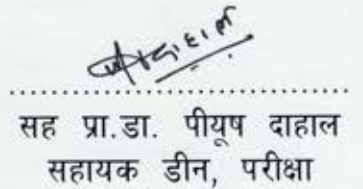 सह प्रा.डा. पीयूष दाहाल
सहायक डीन, परीक्षा